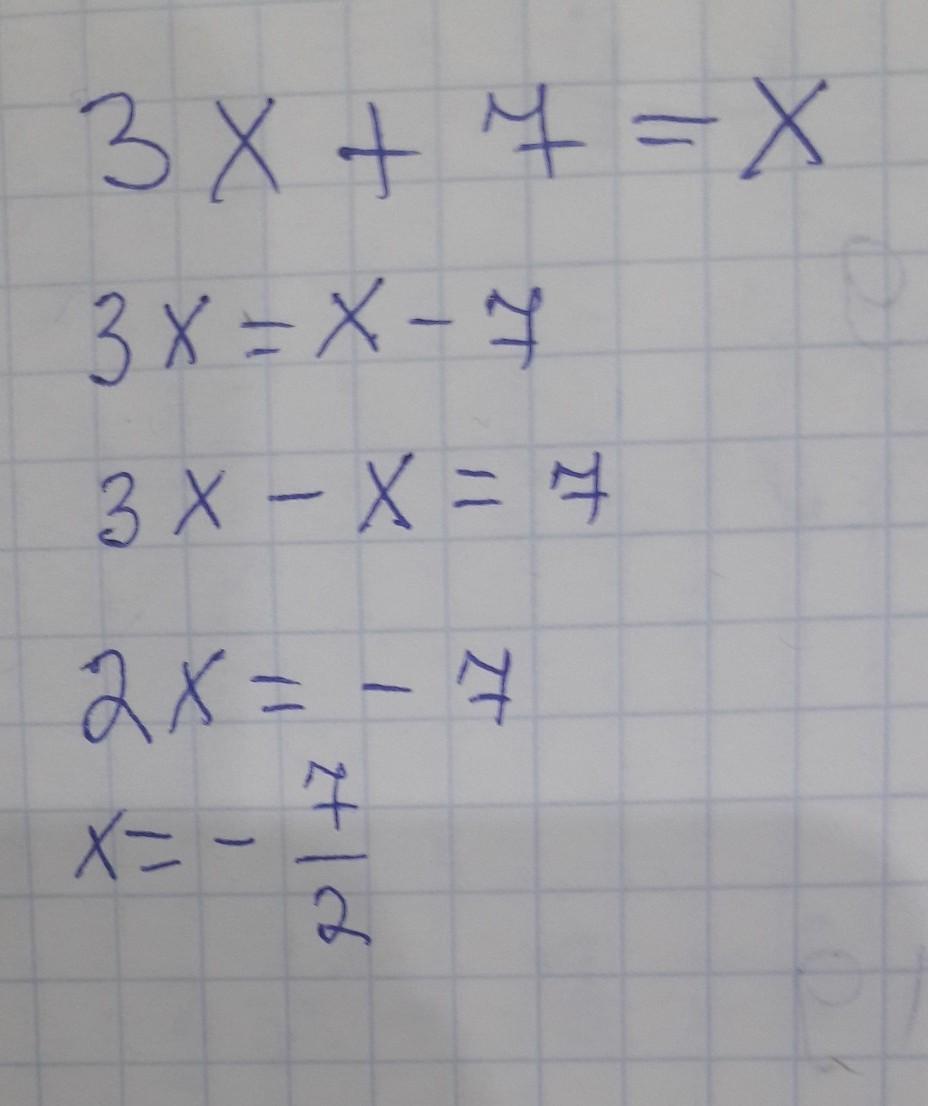 3x + 7 = x
3x = x - 7
3x - x = 7
2x = - 7
x = - 7/2